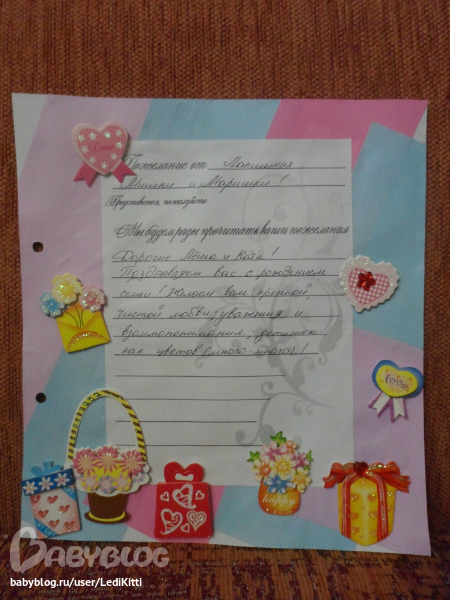 Love
Пожелание от
Мишки и Маришки!
Представьтесь, пожалуйста
Мы будем рады прочитать ваши пожелания
Дорогие Лёша и Катя!
Поздравляем вас с рождением
семьи! Желаем вам крепкой,
чистой любви, уважения и
взаимопонимания, детишек
как цветов (много-много)!
Love
happy
BABYBLOG
babyblog.ru/user/LediKitti